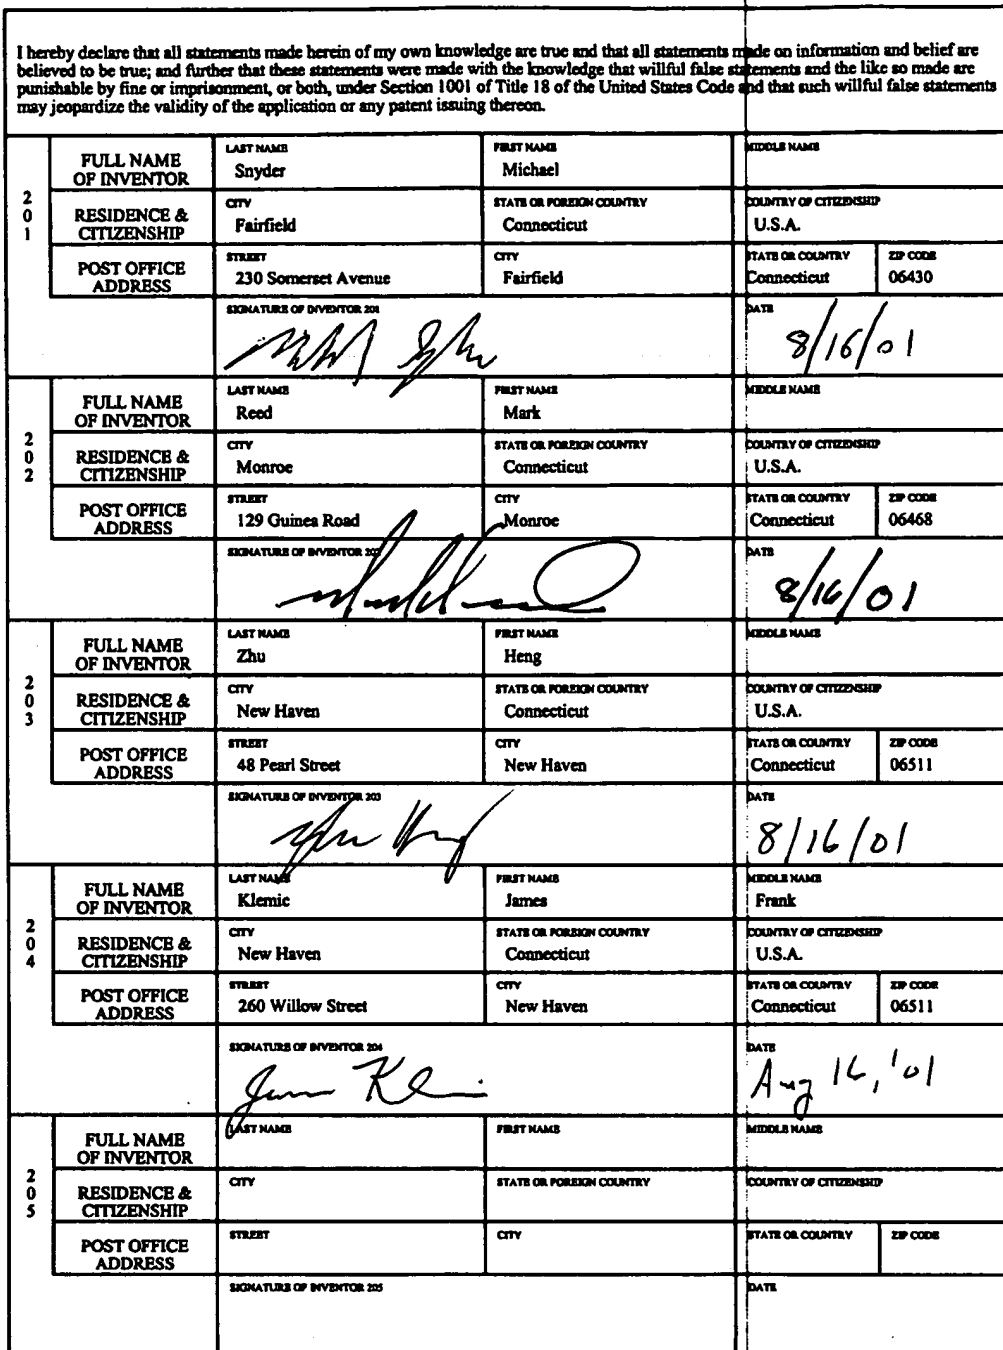 I hereby declare that all statements made herein of my own knowledge are true and that all statements made on information and belief are
believed to be true; and further that these statements were made with the knowledge that willful false statements and the like so made are
punishable by fine or imprisonment, or both, under Section 1001 of Title 18 of the United States Code and that such willful false statements
may jeopardize the validity of the application or any patent issuing thereon.
201
FULL NAME OF INVENTOR
LAST NAME
Snyder
FIRST NAME
Michael
MIDDLE NAME
RESIDENCE & CITIZENSHIP
CITY
Fairfield
STATE OR FOREIGN COUNTRY
Connecticut
COUNTRY OF CITIZENSHIP
U.S.A.
POST OFFICE ADDRESS
STREET
230 Somerset Avenue
CITY
Fairfield
STATE OR COUNTRY
Connecticut
ZIP CODE
06430
SIGNATURE OF INVENTOR 201
DATE
8/16/01
202
FULL NAME OF INVENTOR
LAST NAME
Reed
FIRST NAME
Mark
MIDDLE NAME
RESIDENCE & CITIZENSHIP
CITY
Monroe
STATE OR FOREIGN COUNTRY
Connecticut
COUNTRY OF CITIZENSHIP
U.S.A.
POST OFFICE ADDRESS
STREET
129 Guinea Road
CITY
Monroe
STATE OR COUNTRY
Connecticut
ZIP CODE
06468
SIGNATURE OF INVENTOR 202
DATE
8/16/01
203
FULL NAME OF INVENTOR
LAST NAME
Zhu
FIRST NAME
Heng
MIDDLE NAME
RESIDENCE & CITIZENSHIP
CITY
New Haven
STATE OR FOREIGN COUNTRY
Connecticut
COUNTRY OF CITIZENSHIP
U.S.A.
POST OFFICE ADDRESS
STREET
48 Pearl Street
CITY
New Haven
STATE OR COUNTRY
Connecticut
ZIP CODE
06511
SIGNATURE OF INVENTOR 203
DATE
8/16/01
204
FULL NAME OF INVENTOR
LAST NAME
Klemic
FIRST NAME
James
MIDDLE NAME
Frank
RESIDENCE & CITIZENSHIP
CITY
New Haven
STATE OR FOREIGN COUNTRY
Connecticut
COUNTRY OF CITIZENSHIP
U.S.A.
POST OFFICE ADDRESS
STREET
260 Willow Street
CITY
New Haven
STATE OR COUNTRY
Connecticut
ZIP CODE
06511
SIGNATURE OF INVENTOR 204
DATE
Aug 16, '01
205
FULL NAME OF INVENTOR
LAST NAME
FIRST NAME
MIDDLE NAME
RESIDENCE & CITIZENSHIP
CITY
STATE OR FOREIGN COUNTRY
COUNTRY OF CITIZENSHIP
POST OFFICE ADDRESS
STREET
CITY
STATE OR COUNTRY
ZIP CODE
SIGNATURE OF INVENTOR 205
DATE